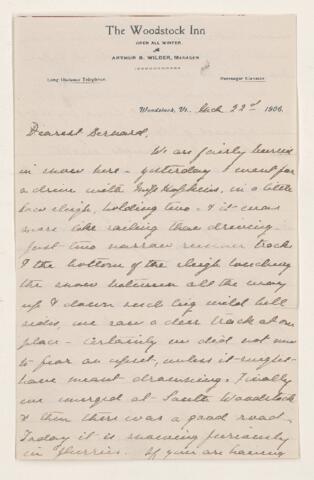 The Woodstock Inn
OPEN ALL WINTER.
ARTHUR B. WILDER, MANAGER
Long Distance Telephone. Passenger Elevator.
Woodstock, Vt., Mch 22nd 1906.
Dearest Bernard,
We are fairly buried
in snow here - yesterday I went for
a drive with Miss Hopkins, in a little
low sleigh, holding two - & it was
more like sailing than driving -
Just two narrow runner track
& the bottom of the sleigh touching
the snow between all the way
up & down such big wild hill
sides, we saw a deer track at one
place - Certainly we did not
to fear an upset, unless it might
have meant drowning. Finally
we emerged at South Woodstock
& then there was a good road -
Today it is snowing furiously
in flurries. If you are having